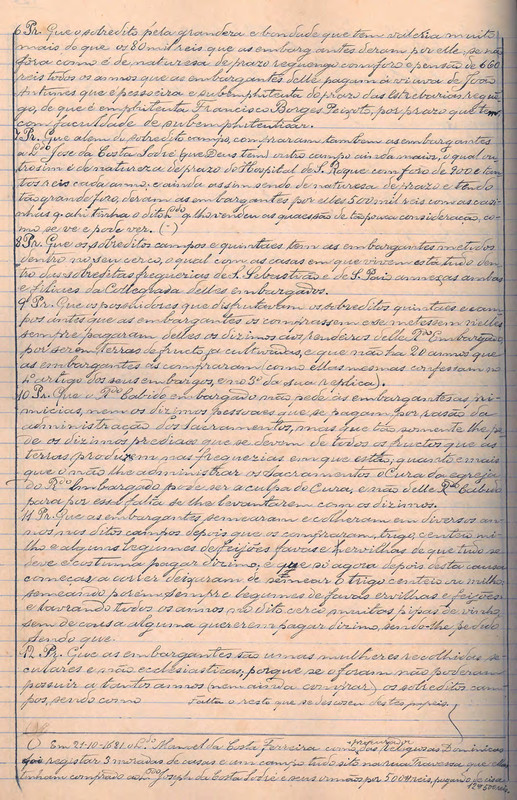 6 Pr. Que o sobredito, pela grandeza e bondade que tem valeria muito
mais do que os 80 mil reis que as embargantes deram por elle, se não
fôra como é de naturesa de prazo reguengo com foro e pensão de 660
reis todos os annos que as embargantes delle pagam á viuva de João
Antunes que é pesseeira e subemphiteuta do prazo das Estrebarias regue-
go, de que é emphiteuta Francisco Borges Peixoto, por prazo que tem
com faculdade de subemphiteuticar.
7 Pr. Que alem do sobredito campo, compraram tambem as embargantes
a L.do José da Costa Sodré que Deus tem, outro campo ainda maior, o qual ou-
trosim é de natureza de prazo do Hospital de S. Roque com foro de 900 e tan-
tos reis cada anno; e ainda assim sendo de naturesa de prazo e tendo
tão grande foro, deram as embargantes por elle 500 mil reis com as casi-
nhas que ahi tinha o dito L.do q lho vendeu as quaes são de tão pouca consideração, co-
mo se ve e pode ver. (·)
8 Pr. Que os sobreditos campos e quintaes tem as embargantes metidos
dentro no seu cerco, o qual com as casas em que vivem está tudo den-
tro das sobreditas freguezias de S. Sebastião e de S. Paio annexas ambas
e filiaes da Collegiada delles embargados.
9 Pr. Que os possuidores que disfrutavam os sobreditos quintaes e cam-
pos antes que as embargantes os comprassem e se metessem nelles
sempre pagaram delles os dizimos aos rendeiros delle R.do Embargado,
por serem terras de fructo, a culturadas, e que não ha 20 annos que
as embargantes as compraram (como ellas mesmas confessam no
4º artigo dos seus embargos, e no 5º da sua replica).
10 Pr. Que o R.do Cabido embargado não pede ás embargantes as pri-
micias, nem os dizimos pessoaes que se pagam por rasão da
administração dos Sacramentos, mas que tão somente lhe pe-
de os dizimos prediaes que se devem de todos os fructos que as
terras produzem nas freguezias em que estão, quanto mais
que o não lhe administrar os Sacramentos o Cura da egreja
do R.do Embargado pode ser a culpa do Cura, e não delle R.do Cabido
para por essa falta se lhe levantarem com os dizimos.
11 Pr. Que as embargantes semearam e colheram em diversos an-
nos, nos ditos campos depois que os compraram, trigo, centeio, mi-
lho e alguns legumes de feijões favas e hervilhas de que tudo se
deve e costuma pagar dizimo; e que só agora depois desta causa
começar a correr deixaram de semear o trigo centeio ou milho
semeando porém sempre legumes de favas ervilhas e feijões
e lavrando todos os annos no dito cerco muitas pipas de vinho,
sem de cousa alguma quererem pagar dizimo, sendo-lhe pedido
sendo que
12 Pr. Que as embargantes são umas mulheres recolhidas, se-
culares e não ecclesiasticas; porque se o foram não poderiam
possuir a tantos annos (nem ainda comprar) os sobreditos cam-
pos, sendo como Falta o resto que se descoseu destes papeis.
(·) Em 21-10-1681 o L.do Manuel da Costa Ferreira como procurador das Religiosas Dominicas
foi registar 3 moradas de casas e um campo tudo sito na rua Travessa que ellas
tinham comprado ao L.do Joseph da Costa Sodré e seus irmãos por 500$ reis, pagando de cisa
12$500 reis.